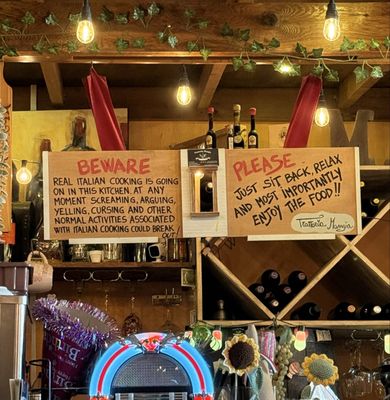 BEWARE
REAL ITALIAN COOKING IS GOING
ON IN THIS KITCHEN AT ANY
MOMENT SCREAMING, ARGUING,
YELLING, CURSING AND OTHER
NORMAL ACTIVITIES ASSOCIATED
WITH ITALIAN COOKING COULD BREAK
OUT
PLEASE
JUST SIT BACK, RELAX
AND MOST IMPORTANTLY
ENJOY THE FOOD!!
Trattoria Mamja